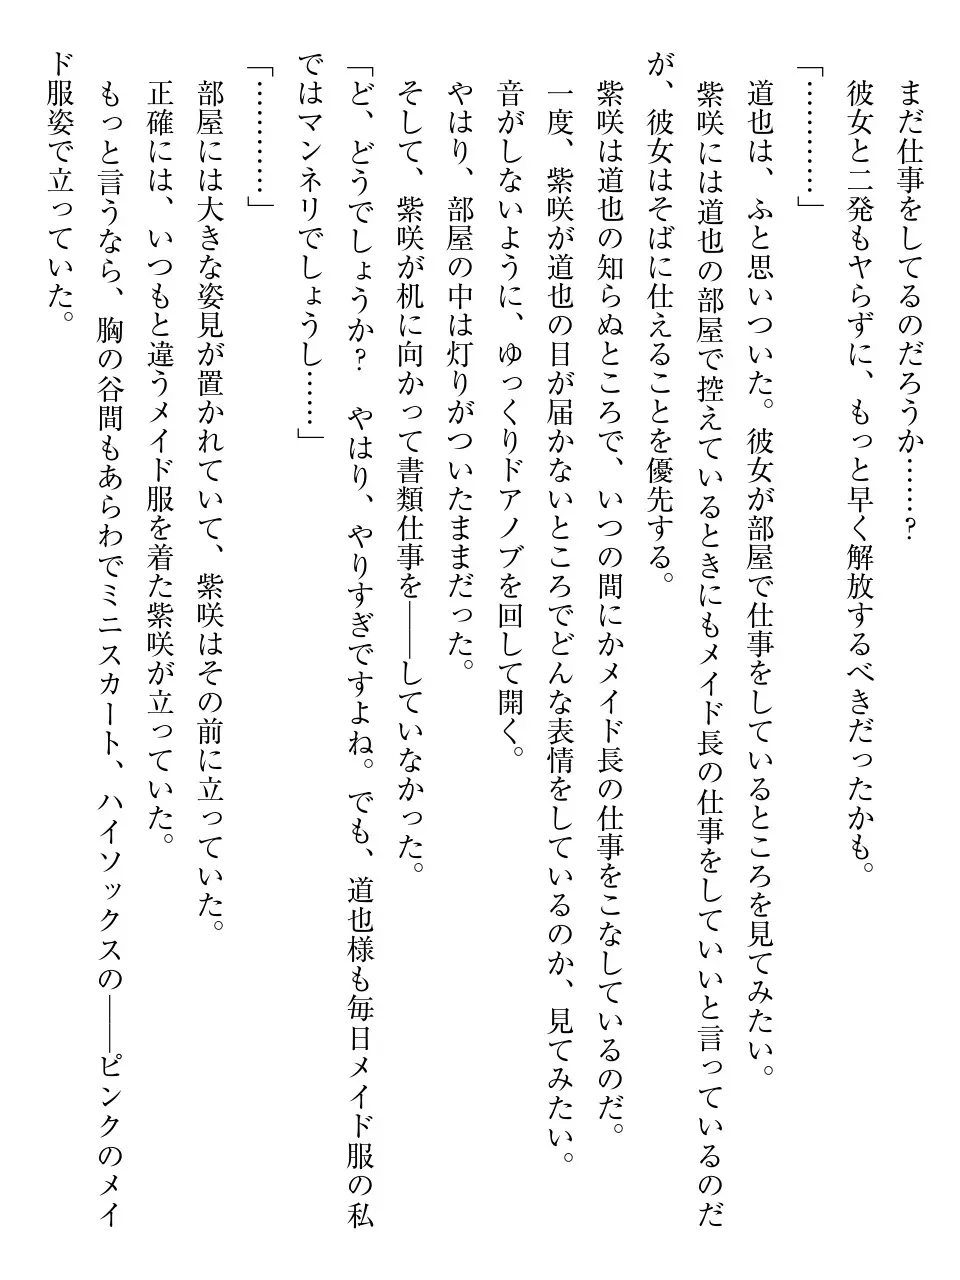 まだ仕事をしてるのだろうか……？
彼女と二発もヤらずに、もっと早く解放するべきだったかも。
「…………」
道也は、ふと思いついた。彼女が部屋で仕事をしているところを見てみたい。
紫咲には道也の部屋で控えているときにもメイド長の仕事をしていいと言っているのだ
が、彼女はそばに仕えることを優先する。
紫咲は道也の知らぬところで、いつの間にかメイド長の仕事をこなしているのだ。
一度、紫咲が道也の目が届かないところでどんな表情をしているのか、見てみたい。
音がしないように、ゆっくりドアノブを回して開く。
やはり、部屋の中は灯りがついたままだった。
そして、紫咲が机に向かって書類仕事を――していなかった。
「ど、どうでしょうか？　やはり、やりすぎですよね。でも、道也様も毎日メイド服の私
ではマンネリでしょうし……」
「…………」
部屋には大きな姿見が置かれていて、紫咲はその前に立っていた。
正確には、いつもと違うメイド服を着た紫咲が立っていた。
もっと言うなら、胸の谷間もあらわでミニスカート、ハイソックスの――ピンクのメイ
ド服姿で立っていた。